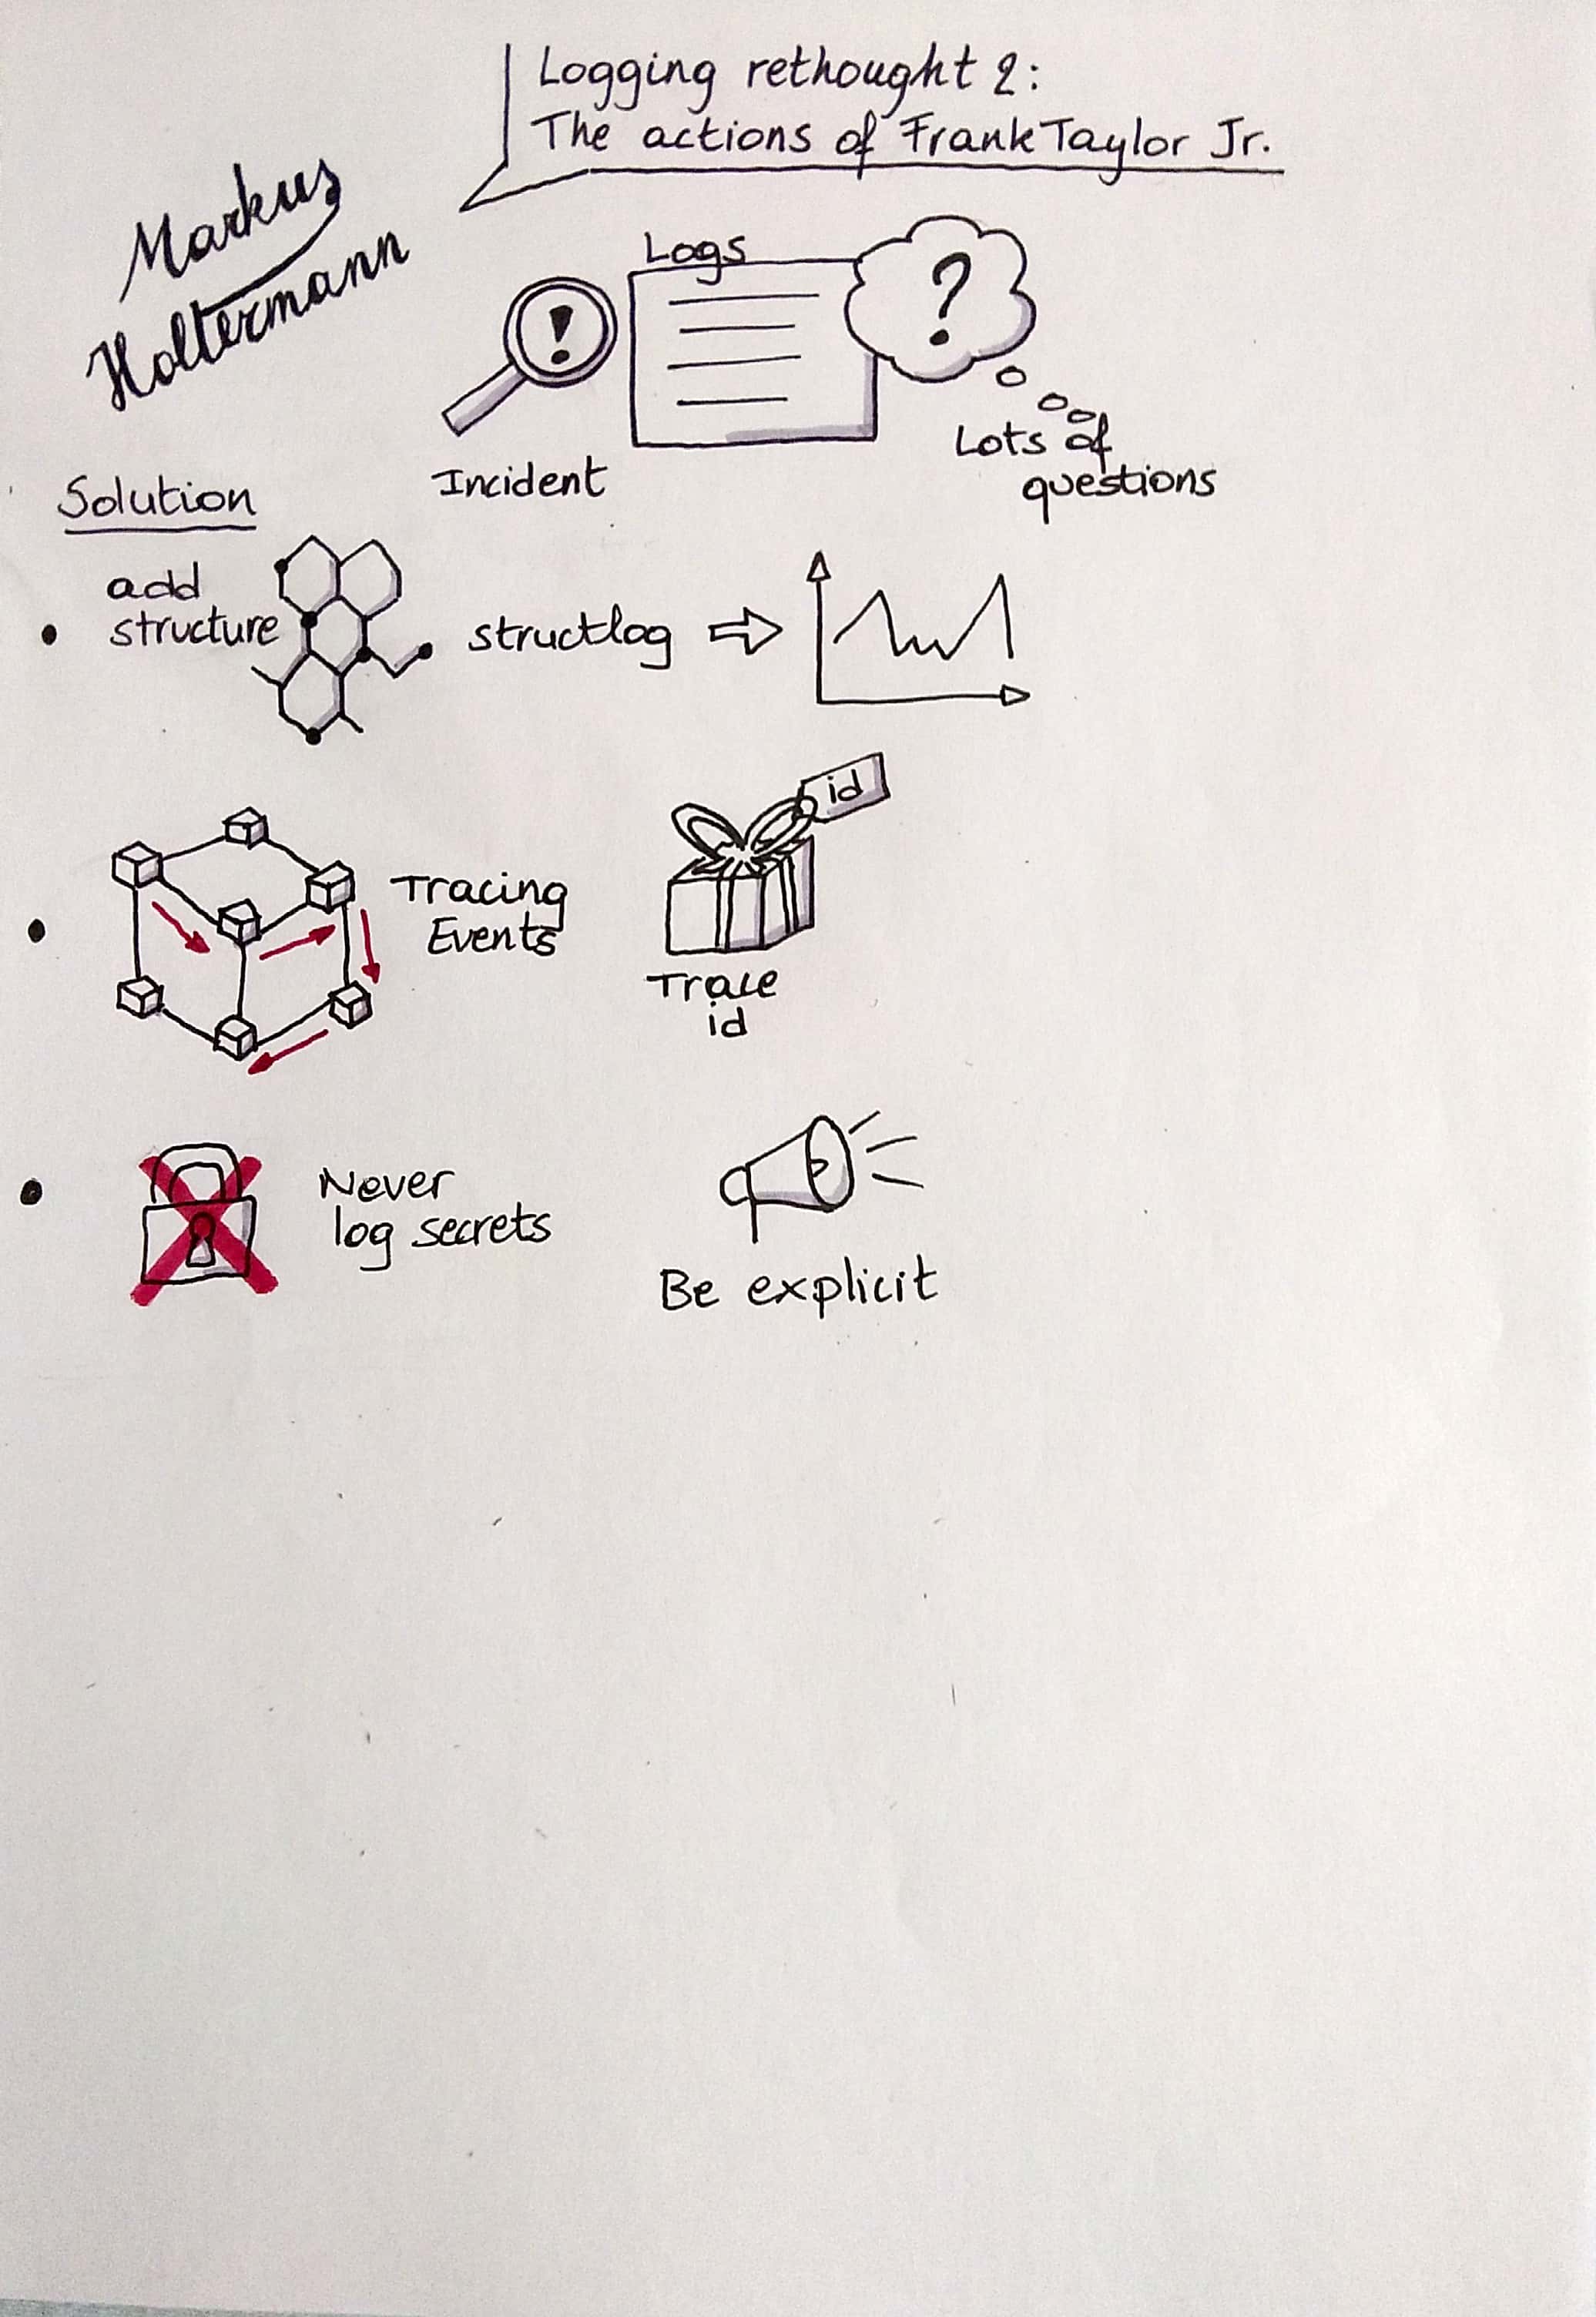 Logging rethought 2:
The actions of Frank Taylor Jr.
Markus
Holtermann
Logs
!
?
Incident
Lots of
questions
Solution
• add
structure
structlog
• Tracing
Events
id
Trace
id
• Never
log secrets
Be explicit